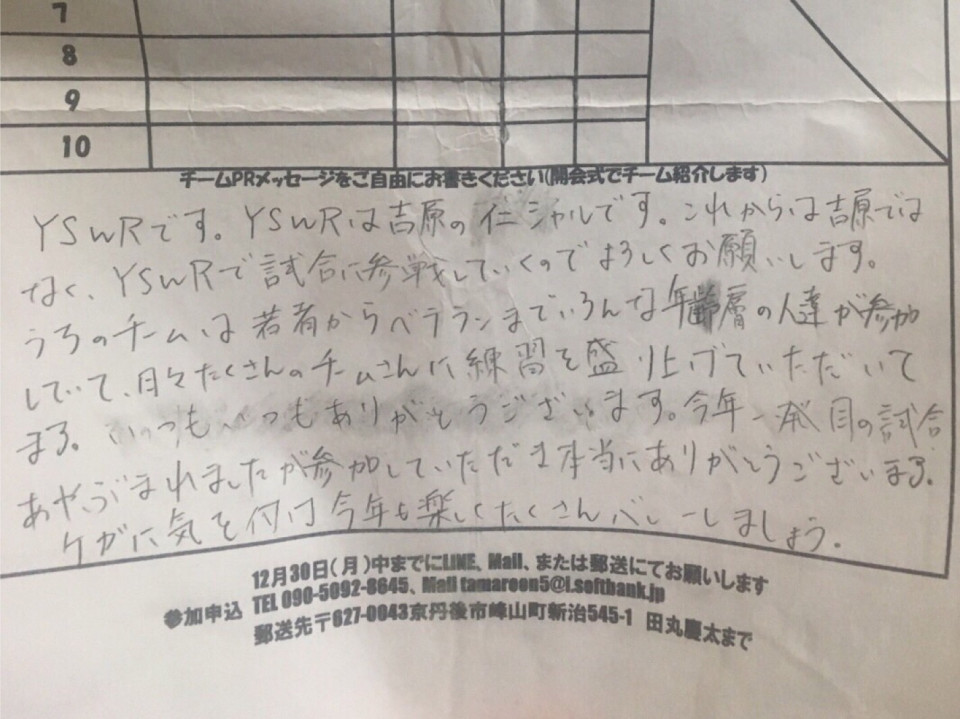 7
8
9
10
チームPRメッセージをご自由にお書きください(開会式でチーム紹介します)
YSWRです。YSWRは吉原のイニシャルです。これからは吉原では
なく、YSWRで試合に参戦していくのでよろしくお願いします。
うちのチームは若者からベテランまでいろんな年齢層の人達が参加
していて、日々たくさんのチームさんに練習を盛り上げていただいて
ます。いつもいつもありがとうございます。今年一発目の試合
あやぶまれましたが参加していただき本当にありがとうございます。
ケガに気を付け今年も楽しくたくさんバレーしましょう。
12月30日(月)中までにLINE、Mail、または郵送にてお願いします
参加申込 TEL 090-5092-8645、Mail tamaroon5@i.softbank.jp
郵送先〒627-0043京丹後市峰山町新治545-1 田丸慶太まで